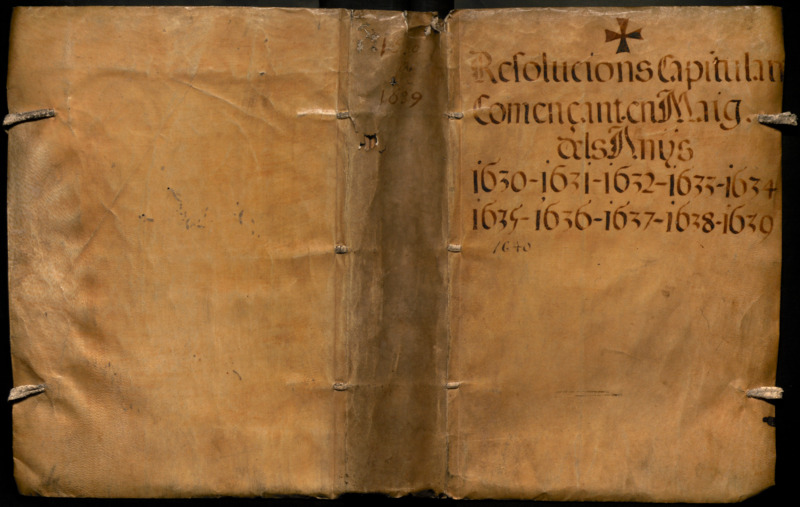 1639
Resolucions Capitulars
Començant en Maig.
dels Anÿs
1630-1631-1632-1633-1634
1635-1636-1637-1638-1639
1640